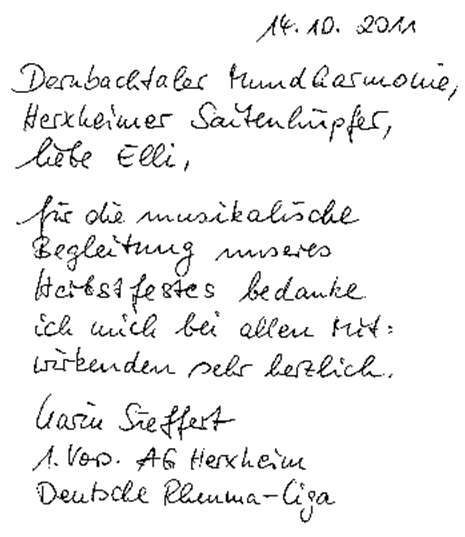 14.10.2011
Dernbachtaler Mundharmonie,
Herxheimer Saitenhüpfer,
liebe Elli,
für die musikalische
Begleitung unseres
Herbstfestes bedanke
ich mich bei allen Mit=
wirkenden sehr herzlich.
Karin Sieffert
1. Vors. AG Herxheim
Deutsche Rheuma-Liga